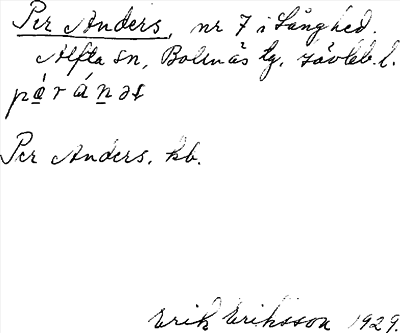 Per Anders, nr 7 i Långhed.
Alfta sn, Bollnäs tg, Gävleb. l.
pạ́ r á n̲ əs
Per Anders. kb.
Erik Eriksson 1929.